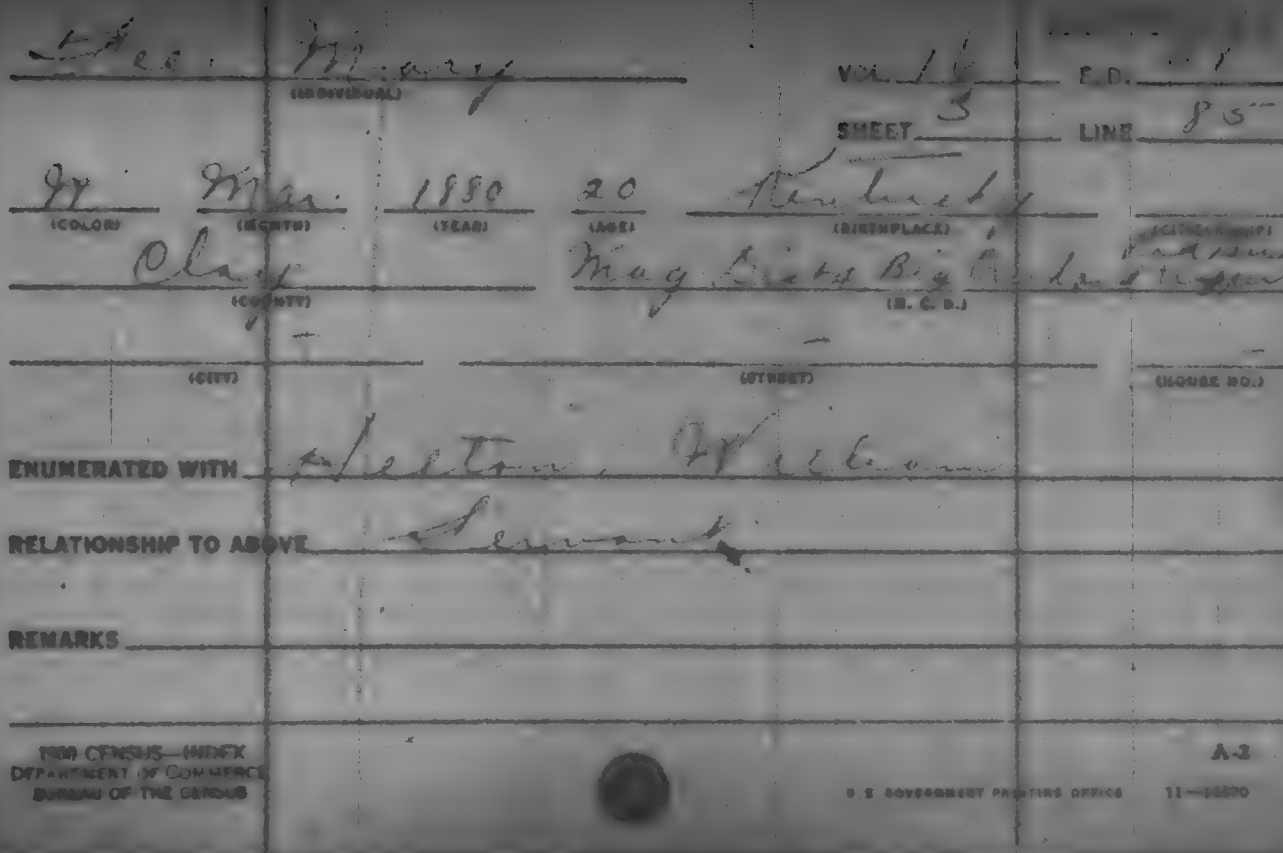 Mary
(INDIVIDUAL)
VOL. E.D. 1
SHEET 3 LINE 85
W Mar. 1880 20 Kentucky
(COLOR) (MONTH) (YEAR) (AGE) (BIRTHPLACE) (CITIZENSHIP)
Clay Mag Dist 2 Big
(COUNTY) (M. C. D.)
(CITY) (STREET) (HOUSE NO.)
ENUMERATED WITH William
RELATIONSHIP TO ABOVE Servant
REMARKS
1900 CENSUS—INDEX
DEPARTMENT OF COMMERCE
BUREAU OF THE CENSUS
A-2
U. S. GOVERNMENT PRINTING OFFICE